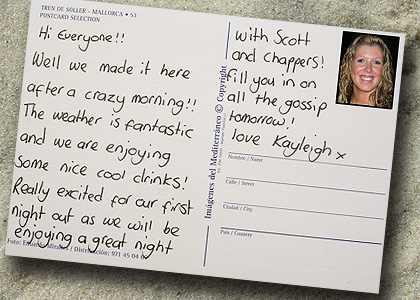 TREN DE SÓLLER - MALLORCA • 53
POSTCARD SELECTION
Hi Everyone!!
Well we made it here
after a crazy morning!!
The weather is fantastic
and we are enjoying
some nice cool drinks!
Really excited for our first
night out as we will be
enjoying a great night
Foto: / Distribución: 971 45 04
Imágenes del Mediterráneo © Copyright
with Scott
and Chappers!
Fill you in on
all the gossip
tomorrow!
love Kayleigh x
Nombre / Name
Calle / Street
Ciudad / City
País / Country